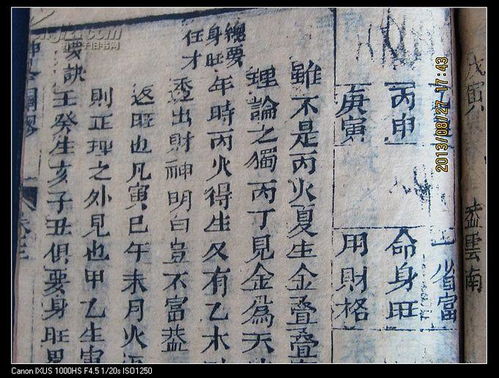 戊寅 盐雲南
一省富
丙申 命身旺
庚寅 用財格
雖不是丙火夏生金疊疊
理論之獨丙丁見金為天
年時丙火得生又有乙木
透出財神明白豈不富盐
返旺也凡寅巳午未月火
則正理之外見也甲乙生寅
壬癸生亥子丑俱要身旺
總要
身旺
任才
要訣
2013/08/27 17:43
Canon IXUS 1000HS F4.5 1/20s ISO1250